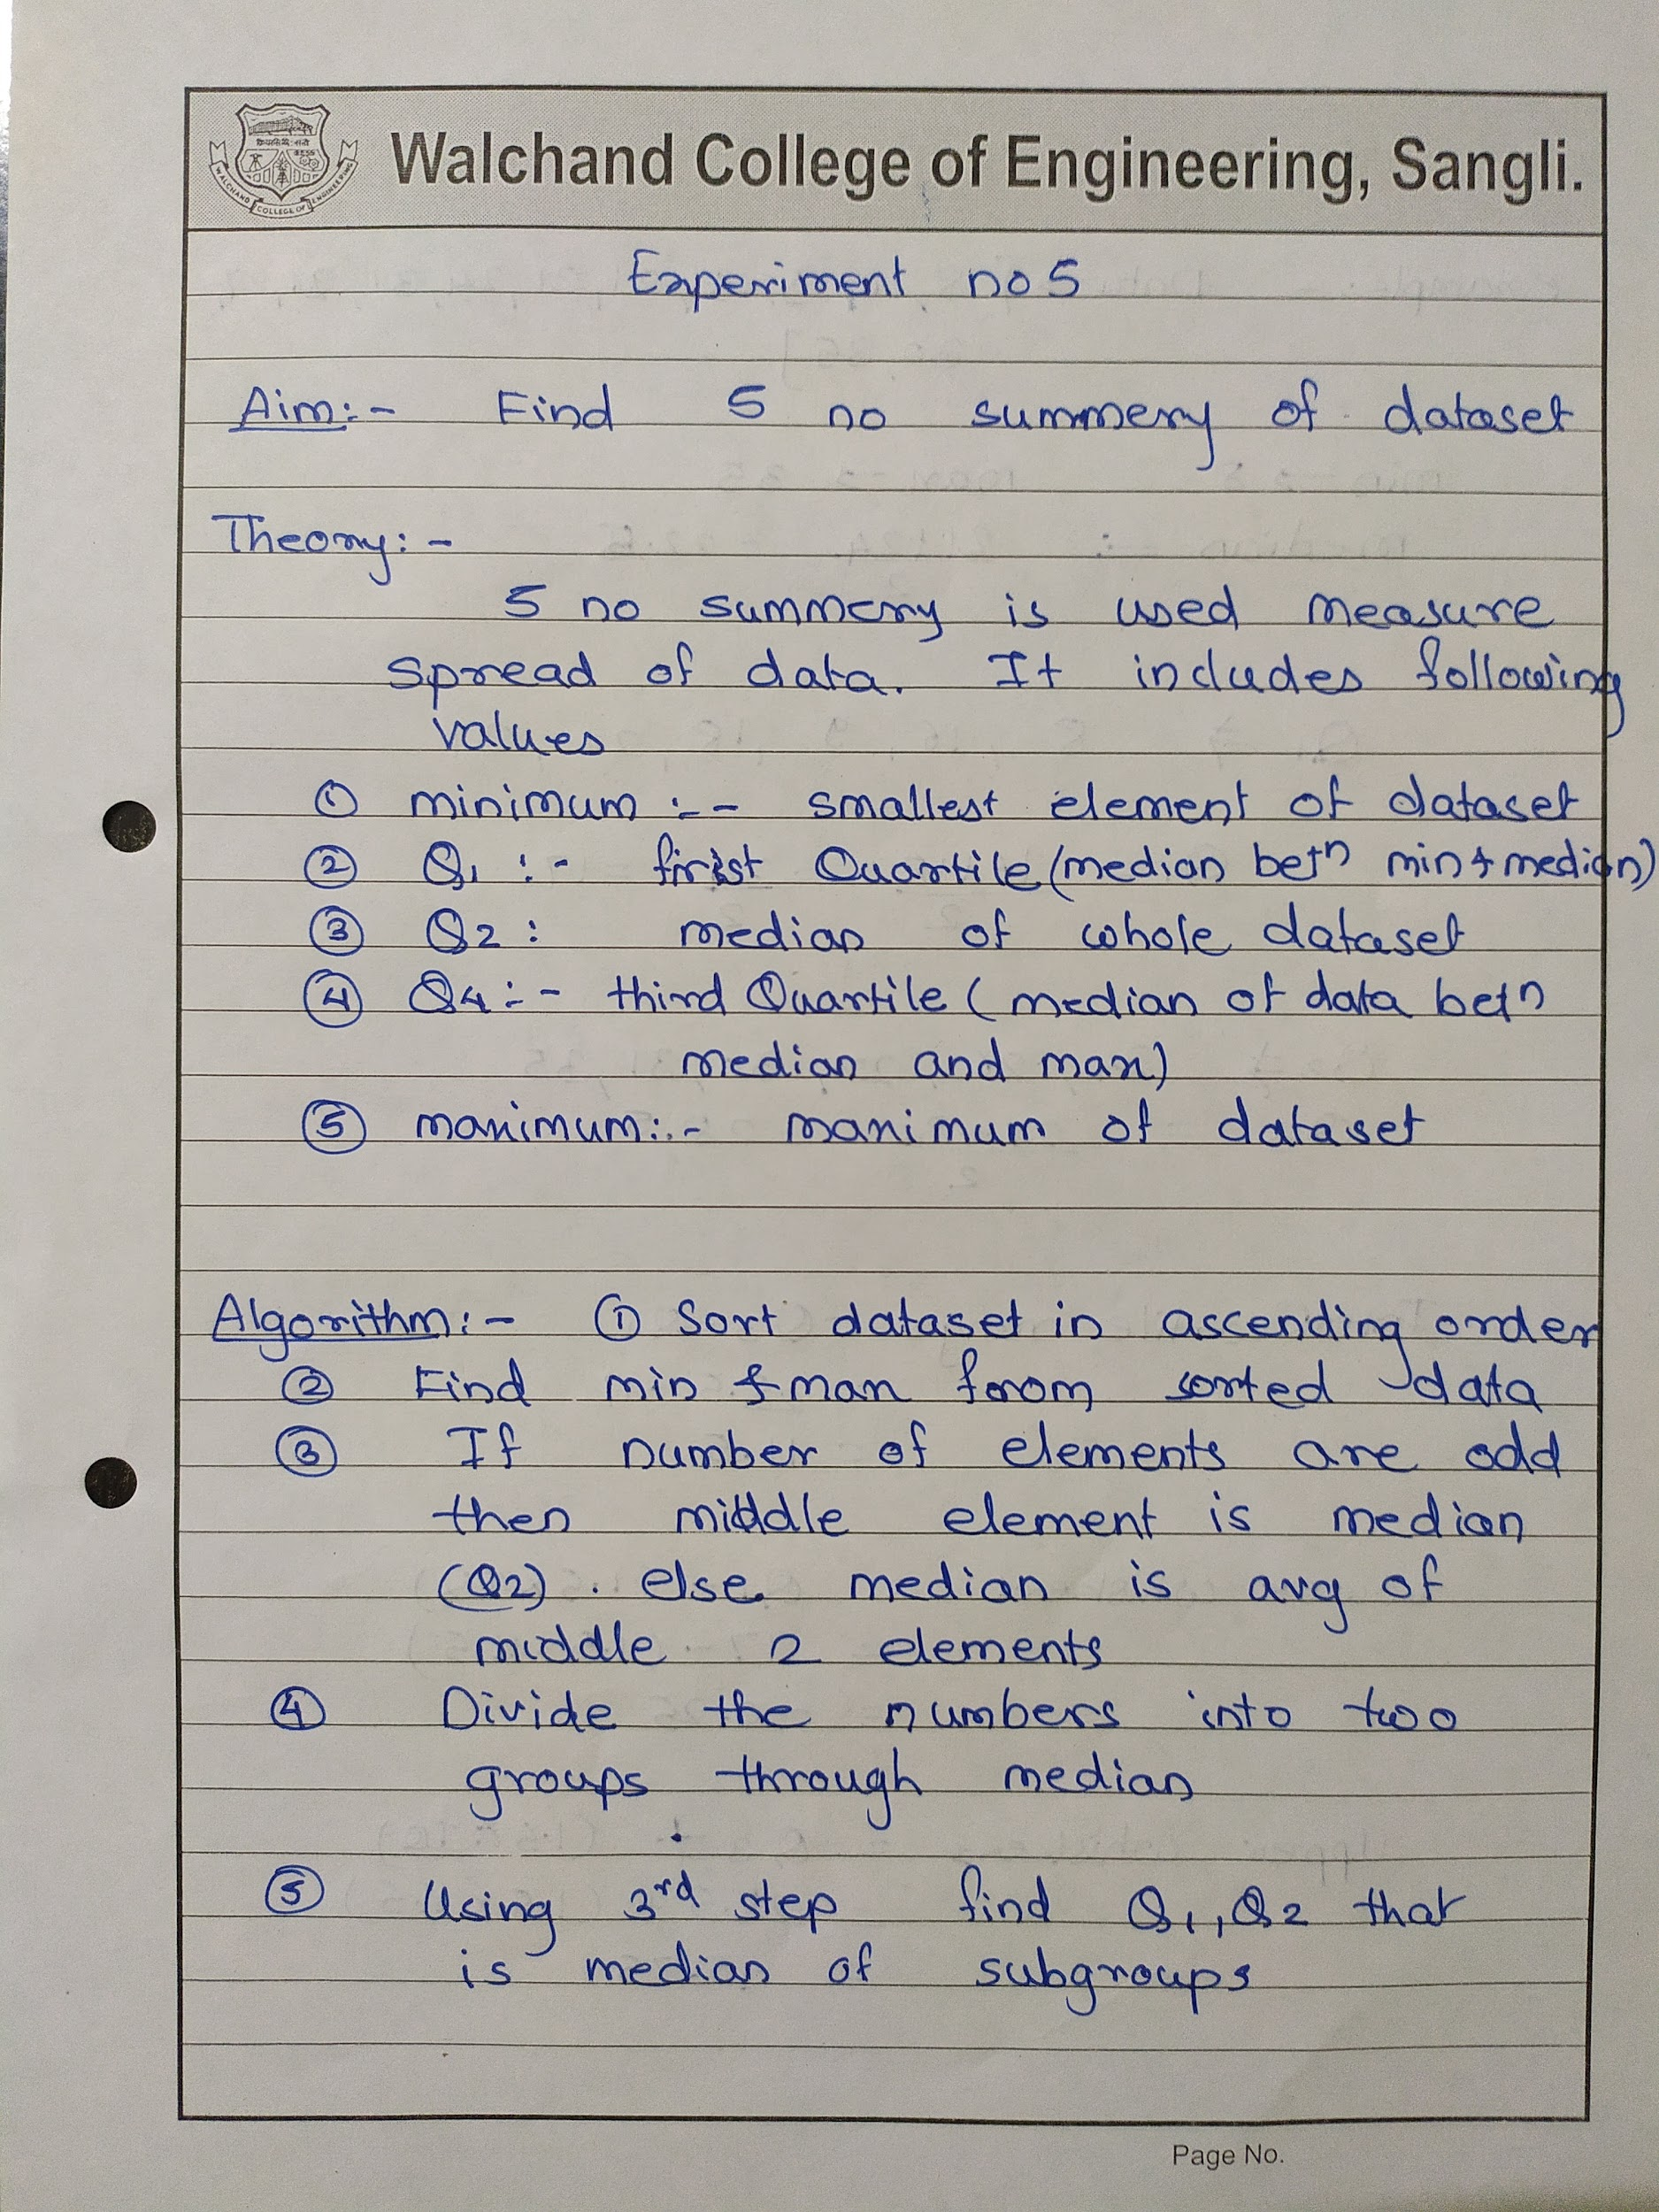 Walchand College of Engineering, Sangli.
WALCHAND COLLEGE OF ENGINEERING
Experiment no 5
Aim:- Find 5 no summery of dataset
Theory:-
5 no summery is used measure
spread of data. It includes following
values
① minimum :- smallest element of dataset
② Q1 :- first Quartile (median betn min & median)
③ Q2 : median of whole dataset
④ Q4 :- third Quartile ( median of data betn
median and max)
⑤ maximum:- maximum of dataset
Algorithm:- ① Sort dataset in ascending order
② Find min & max from sorted data
③ If number of elements are odd
then middle element is median
(Q2) . else median is avg of
middle 2 elements
④ Divide the numbers into two
groups through median
⑤ Using 3rd step find Q1, Q2 that
is median of subgroups
Page No.